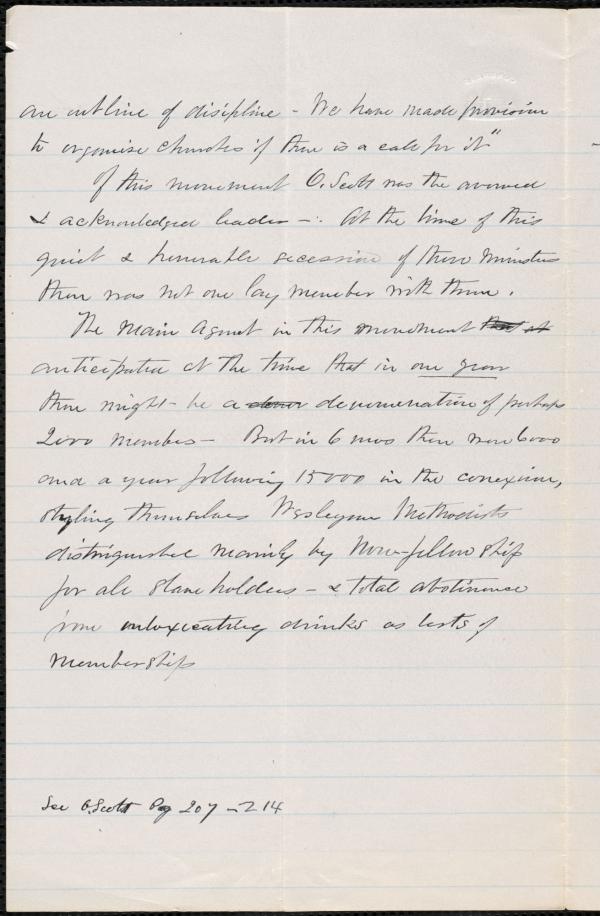 an outline of discipline - We have made provision
to organise churches if there is a call for it"
Of this movement O. Scott was the avowed
& acknowledged leader -. At the time of this
quiet & honorable secession of three ministers
there was not one lay member with them.
The Main Agent in this movement that at
anticipated at the time that in one year
there might be a denomination of perhaps
2000 members - But in 6 mos there were 6000
and a year following 15000 in the conexion,
styling themselves Wesleyan Methodists
distinguished mainly by Non-fellowship
for all slave holders - & total abstinence
from intoxicating drinks as tests of
membership
See O. Scott Pag 207 - 214